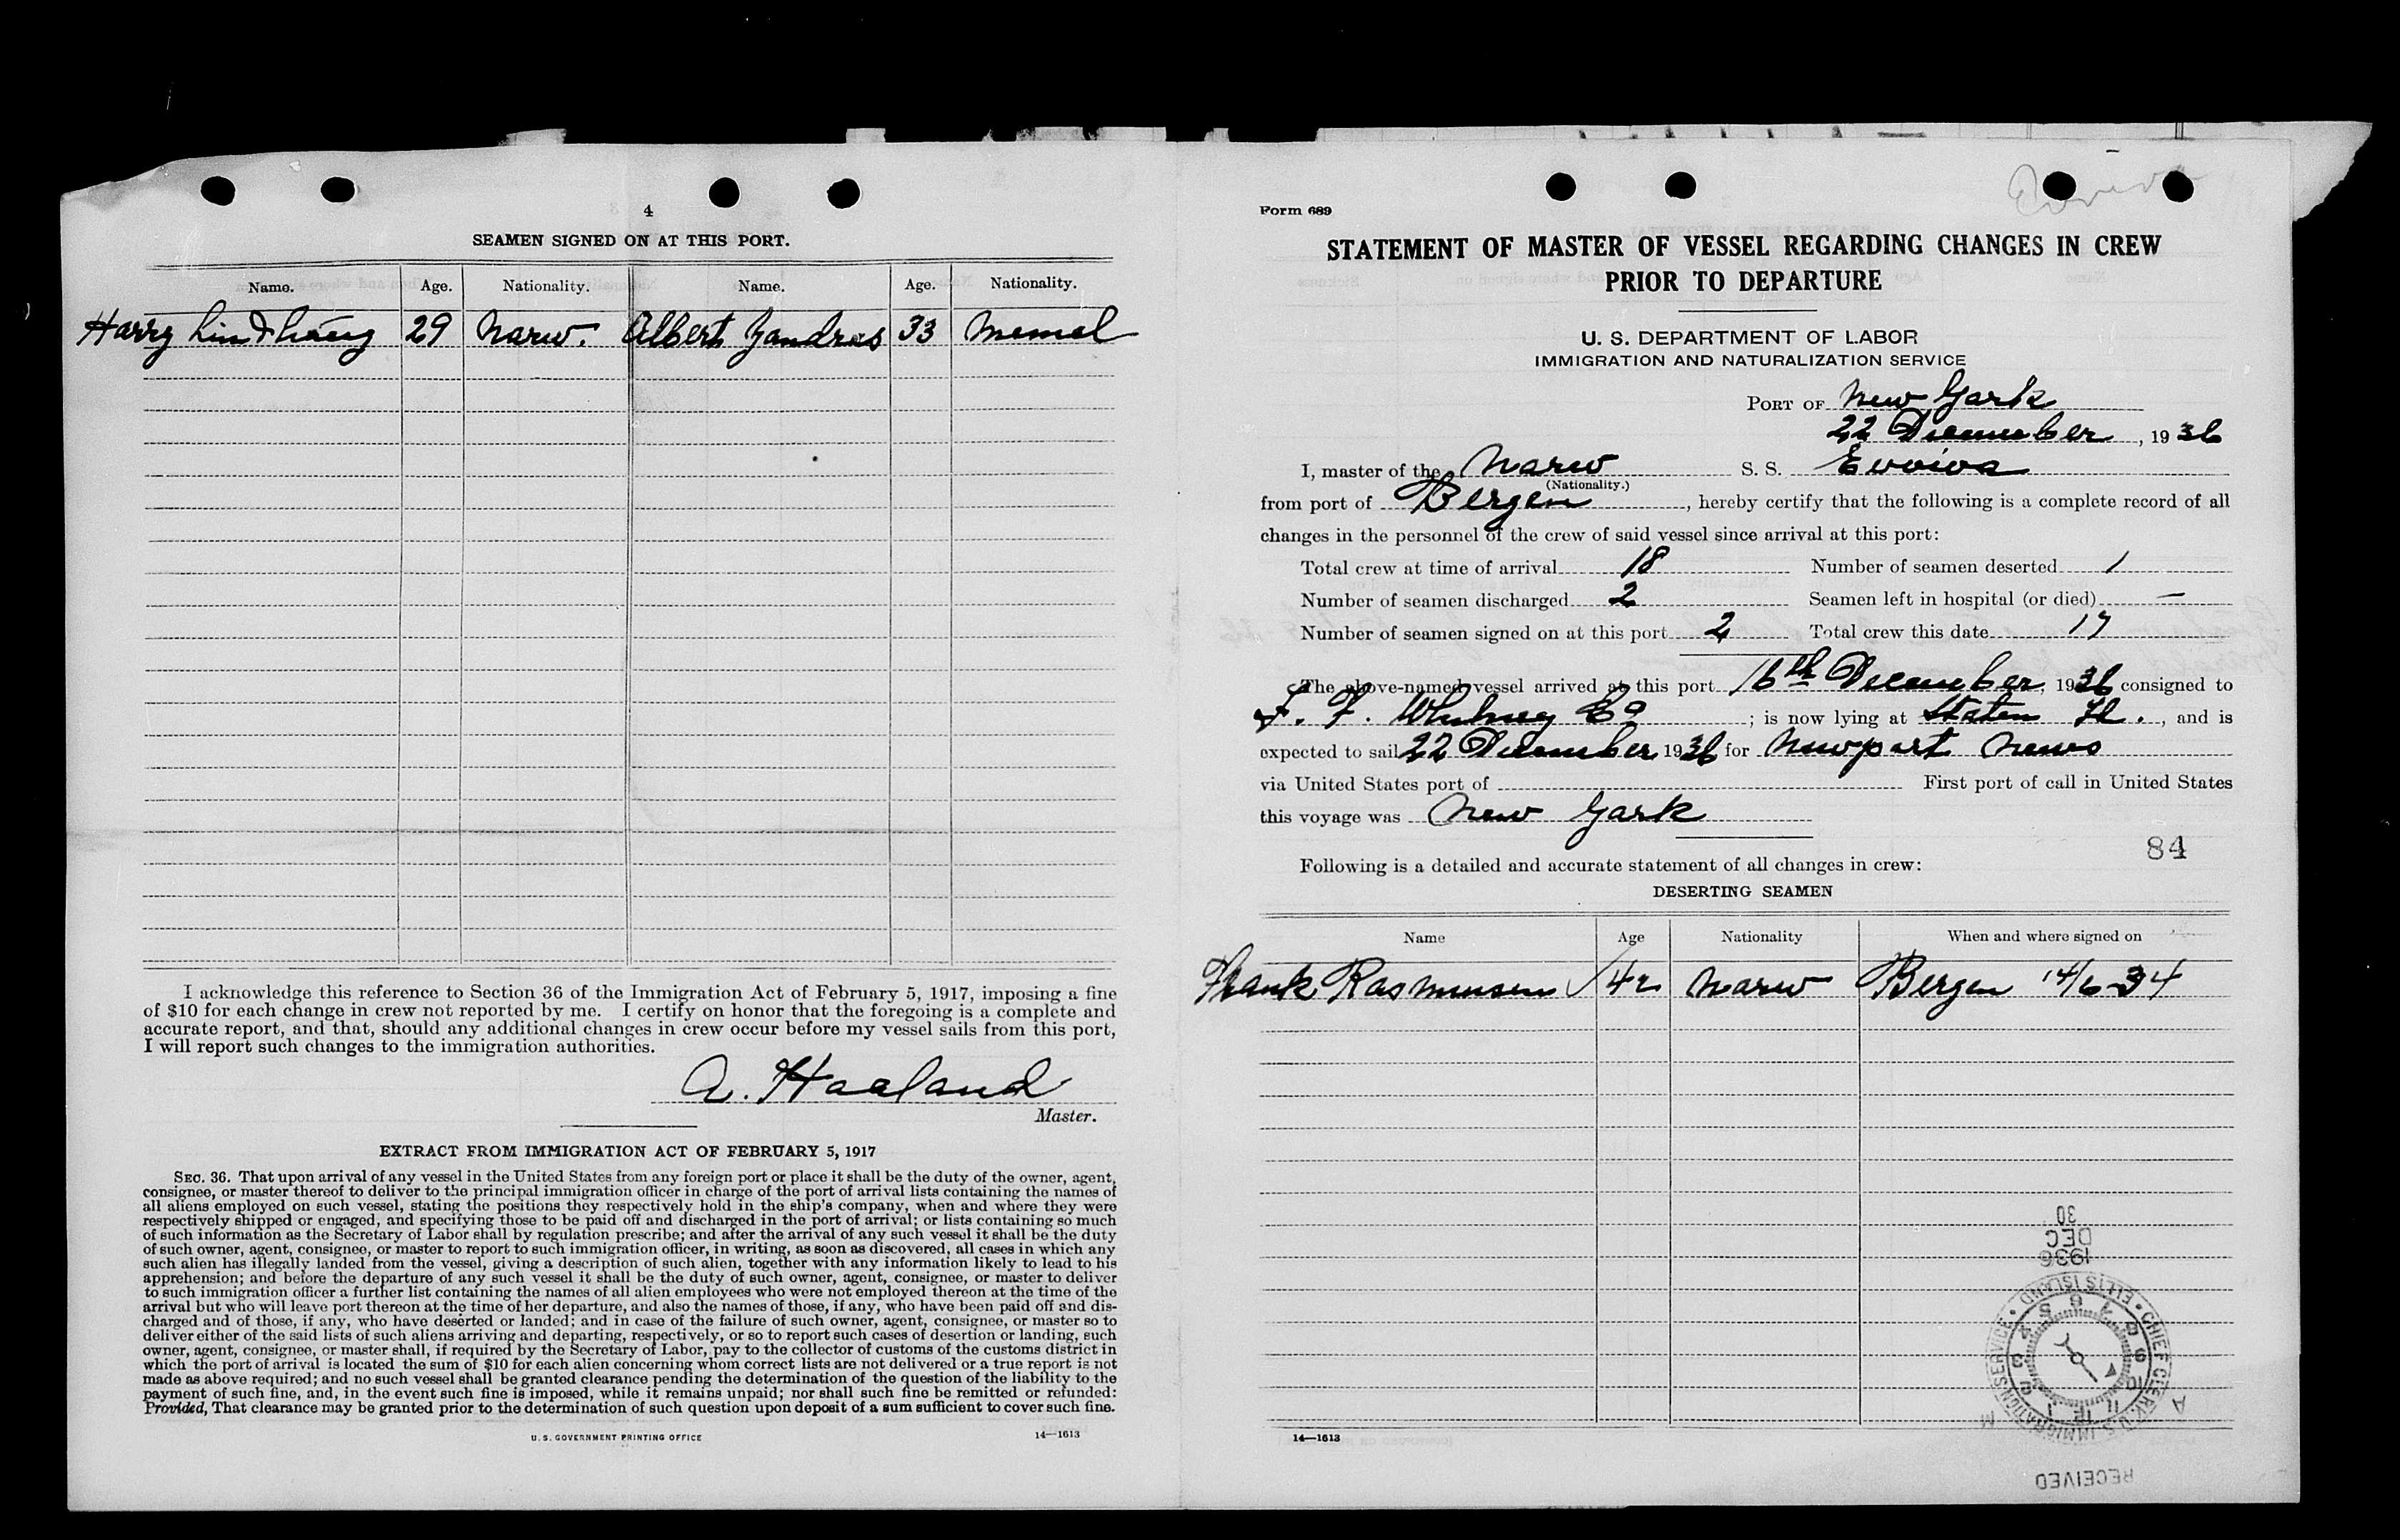 4
SEAMEN SIGNED ON AT THIS PORT.
Name. Age. Nationality. Name. Age. Nationality.
Harry Lindhaug 29 Norw. Albert Jandras 33 Memel
I acknowledge this reference to Section 36 of the Immigration Act of February 5, 1917, imposing a fine
of $10 for each change in crew not reported by me. I certify on honor that the foregoing is a complete and
accurate report, and that, should any additional changes in crew occur before my vessel sails from this port,
I will report such changes to the immigration authorities.
A. Haaland
Master.
EXTRACT FROM IMMIGRATION ACT OF FEBRUARY 5, 1917
SEC. 36. That upon arrival of any vessel in the United States from any foreign port or place it shall be the duty of the owner, agent,
consignee, or master thereof to deliver to the principal immigration officer in charge of the port of arrival lists containing the names of
all aliens employed on such vessel, stating the positions they respectively hold in the ship's company, when and where they were
respectively shipped or engaged, and specifying those to be paid off and discharged in the port of arrival; or lists containing so much
of such information as the Secretary of Labor shall by regulation prescribe; and after the arrival of any such vessel it shall be the duty
of such owner, agent, consignee, or master to report to such immigration officer, in writing, as soon as discovered, all cases in which any
such alien has illegally landed from the vessel, giving a description of such alien, together with any information likely to lead to his
apprehension; and before the departure of any such vessel it shall be the duty of such owner, agent, consignee, or master to deliver
to such immigration officer a further list containing the names of all alien employees who were not employed thereon at the time of the
arrival but who will leave port thereon at the time of her departure, and also the names of those, if any, who have been paid off and dis-
charged and of those, if any, who have deserted or landed; and in case of the failure of such owner, agent, consignee, or master so to
deliver either of the said lists of such aliens arriving and departing, respectively, or so to report such cases of desertion or landing, such
owner, agent, consignee, or master shall, if required by the Secretary of Labor, pay to the collector of customs of the customs district in
which the port of arrival is located the sum of $10 for each alien concerning whom correct lists are not delivered or a true report is not
made as above required; and no such vessel shall be granted clearance pending the determination of the question of the liability to the
payment of such fine, and, in the event such fine is imposed, while it remains unpaid; nor shall such fine be remitted or refunded:
Provided, That clearance may be granted prior to the determination of such question upon deposit of a sum sufficient to cover such fine.
U. S. GOVERNMENT PRINTING OFFICE 14—1613
Form 689
STATEMENT OF MASTER OF VESSEL REGARDING CHANGES IN CREW
PRIOR TO DEPARTURE
U. S. DEPARTMENT OF LABOR
IMMIGRATION AND NATURALIZATION SERVICE
PORT OF New York
22 December, 1936
I, master of the Norw S. S. Evviva
(Nationality.)
from port of Bergen, hereby certify that the following is a complete record of all
changes in the personnel of the crew of said vessel since arrival at this port:
Total crew at time of arrival 18 Number of seamen deserted 1
Number of seamen discharged 2 Seamen left in hospital (or died) —
Number of seamen signed on at this port 2 Total crew this date 17
The above-named vessel arrived at this port 16th December, 1936 consigned to
F. Whitney Co; is now lying at Staten Isl., and is
expected to sail 22 December 1936 for Newport News
via United States port of First port of call in United States
this voyage was New York
84
Following is a detailed and accurate statement of all changes in crew:
DESERTING SEAMEN
Name Age Nationality When and where signed on
Frank Rasmussen 42 Norw Bergen 14/6-34
1936
DEC
30
CHIEF CLERK U. S. IMMIGRATION SERVICE • ELLIS ISLAND •
A M
RECEIVED
14—1613